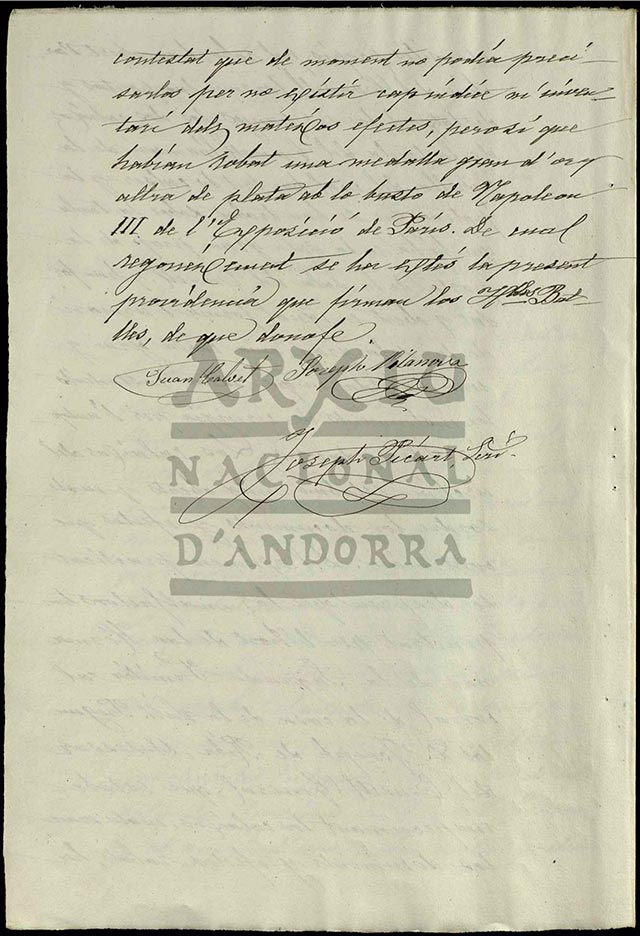 contestat que de moment no podia preci-
sarlos per no existir cap indice ni inven-
tari dels mateixos efectes, pero sí que
habian robat una medalla gran d'or y
altra de plata ab lo busto de Napoleon
III de l'Exposició de París. De cual
regoneixement se ha extés la present
providencia que firman los Hbles Bat-
lles, de que donofe.
Juan Calvet Joseph Vilanova
Joseph Picart, Scri.
ARXIU
NACIONAL
D'ANDORRA